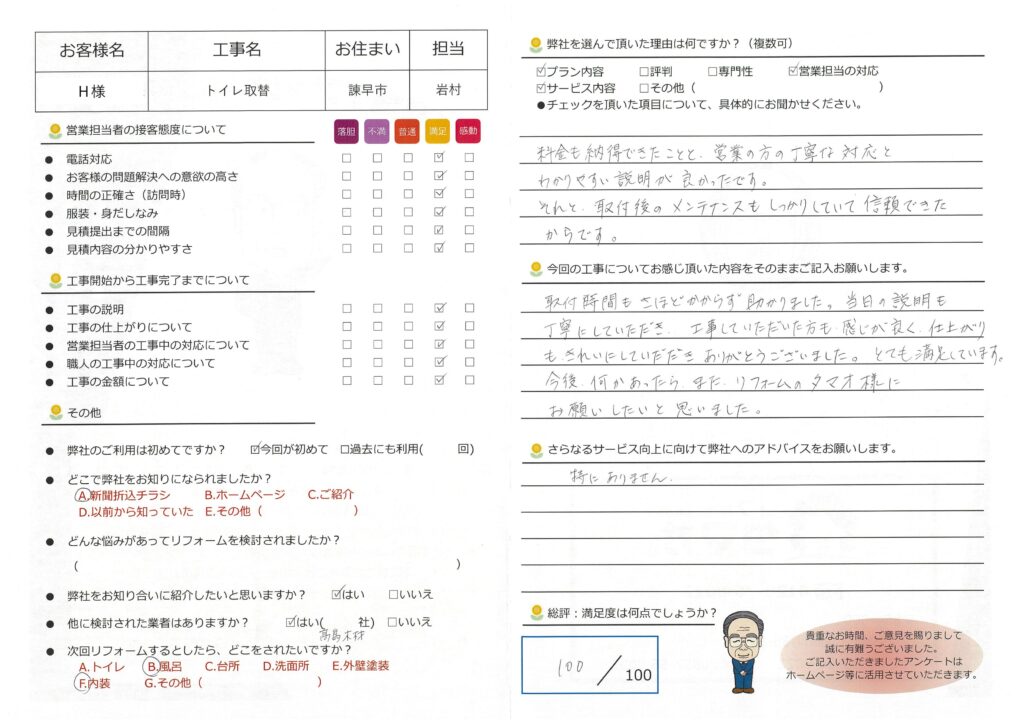 お客様名 工事名 お住まい 担当
H様 トイレ取替 諫早市 岩村
営業担当者の接客態度について 落胆 不満 普通 満足 感動
● 電話対応 □ □ □ ☑ □
● お客様の問題解決への意欲の高さ □ □ □ ☑ □
● 時間の正確さ（訪問時） □ □ □ ☑ □
● 服装・身だしなみ □ □ □ ☑ □
● 見積提出までの間隔 □ □ □ ☑ □
● 見積内容の分かりやすさ □ □ □ ☑ □
工事開始から工事完了までについて
● 工事の説明 □ □ □ ☑ □
● 工事の仕上がりについて □ □ □ ☑ □
● 営業担当者の工事中の対応について □ □ □ ☑ □
● 職人の工事中の対応について □ □ □ ☑ □
● 工事の金額について □ □ □ ☑ □
その他
● 弊社のご利用は初めてですか？ ☑今回が初めて □過去にも利用( 回)
● どこで弊社をお知りになられましたか？
A.新聞折込チラシ B.ホームページ C.ご紹介
D.以前から知っていた E.その他（ ）
● どんな悩みがあってリフォームを検討されましたか？
（ ）
● 弊社をお知り合いに紹介したいと思いますか？ ☑はい □いいえ
● 他に検討された業者はありますか？ ☑はい( 社) □いいえ
髙島木材
● 次回リフォームするとしたら、どこをされたいですか？
A.トイレ B.風呂 C.台所 D.洗面所 E.外壁塗装
F.内装 G.その他（ ）
弊社を選んで頂いた理由は何ですか？（複数可）
☑プラン内容 □評判 □専門性 ☑営業担当の対応
☑サービス内容 □その他（ ）
●チェックを頂いた項目について、具体的にお聞かせください。
料金も納得できたことと、営業の方の丁寧な対応と
わかりやすい説明が良かったです。
それと、取付後のメンテナンスもしっかりしていて信頼できた
からです。
今回の工事についてお感じ頂いた内容をそのままご記入お願いします。
取付時間もさほどかからず助かりました。当日の説明も
丁寧にしていただき、工事していただいた方も感じが良く、仕上がり
も、きれいにしていただきありがとうございました。とても満足しています。
今後、何かあったら、また、リフォームのタマオ様に
お願いしたいと思いました。
さらなるサービス向上に向けて弊社へのアドバイスをお願いします。
特にありません。
総評：満足度は何点でしょうか？
100 /100
貴重なお時間、ご意見を賜りまして
誠に有難うございました。
ご記入いただきましたアンケートは
ホームページ等に活用させていただきます。